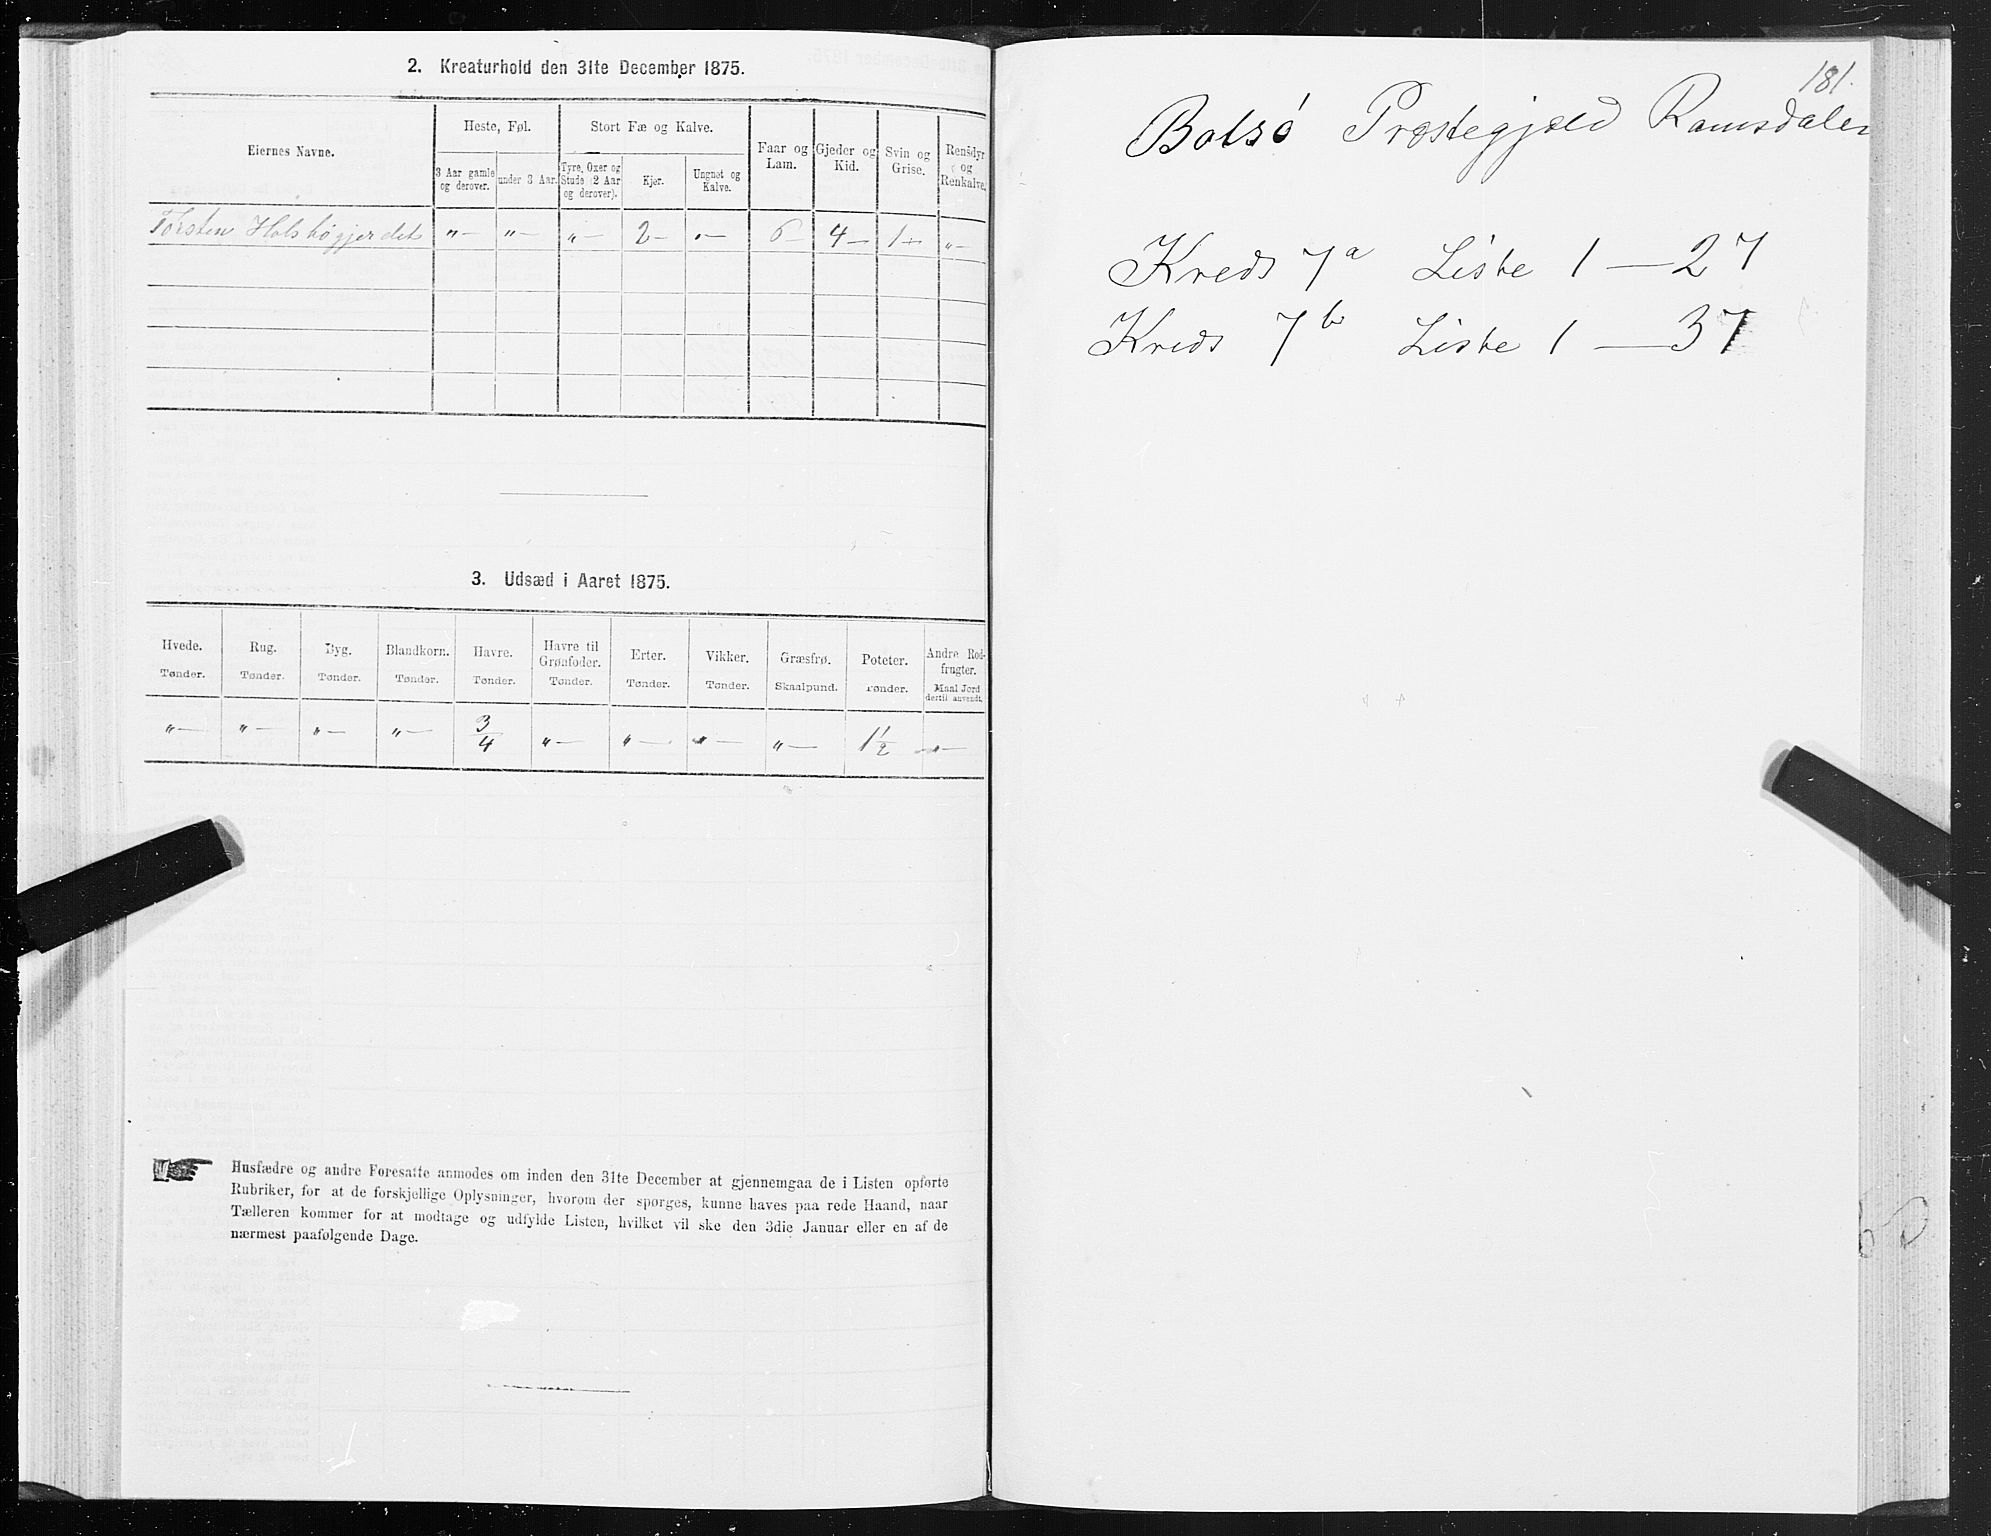 2. Kreaturhold den 31te December 1875.
Eiernes Navne.
Heste, Føl.
Stort Fæ og Kalve.
Faar og Lam.
Gjeder og Kid.
Svin og Grise.
Rensdyr og Renkalve.
3 Aar gamle og derover.
under 3 Aar.
Tyre, Oxer og Stude (2 Aar og derover).
Kjør.
Ungnøt og Kalve.
Torsten Holshøgjerdet „— „— „— 2— „— 6— 4— 1— „—
3. Udsæd i Aaret 1875.
Hvede. Rug. Byg. Blandkorn. Havre. Havre til Grønfoder. Erter. Vikker. Græsfrø. Poteter. Andre Rodfrugter.
Tønder. Tønder. Tønder. Tønder. Tønder. Tønder. Tønder. Tønder. Skaalpund. Tønder. Maal Jord dertil anvendt.
„— „— „— „— 3/4 „— „— „— „— 1 1/2 „—
Husfædre og andre Foresatte anmodes om inden den 31te December at gjennemgaa de i Listen opførte
Rubriker, for at de forskjellige Oplysninger, hvorom der spørges, kunne haves paa rede Haand, naar
Tælleren kommer for at modtage og udfylde Listen, hvilket vil ske den 3die Januar eller en af de
nærmest paafølgende Dage.
181.
Bolsø Præstegjæld Romsdalen
Kreds 7a Liste 1 — 27
Kreds 7b Liste 1 — 37